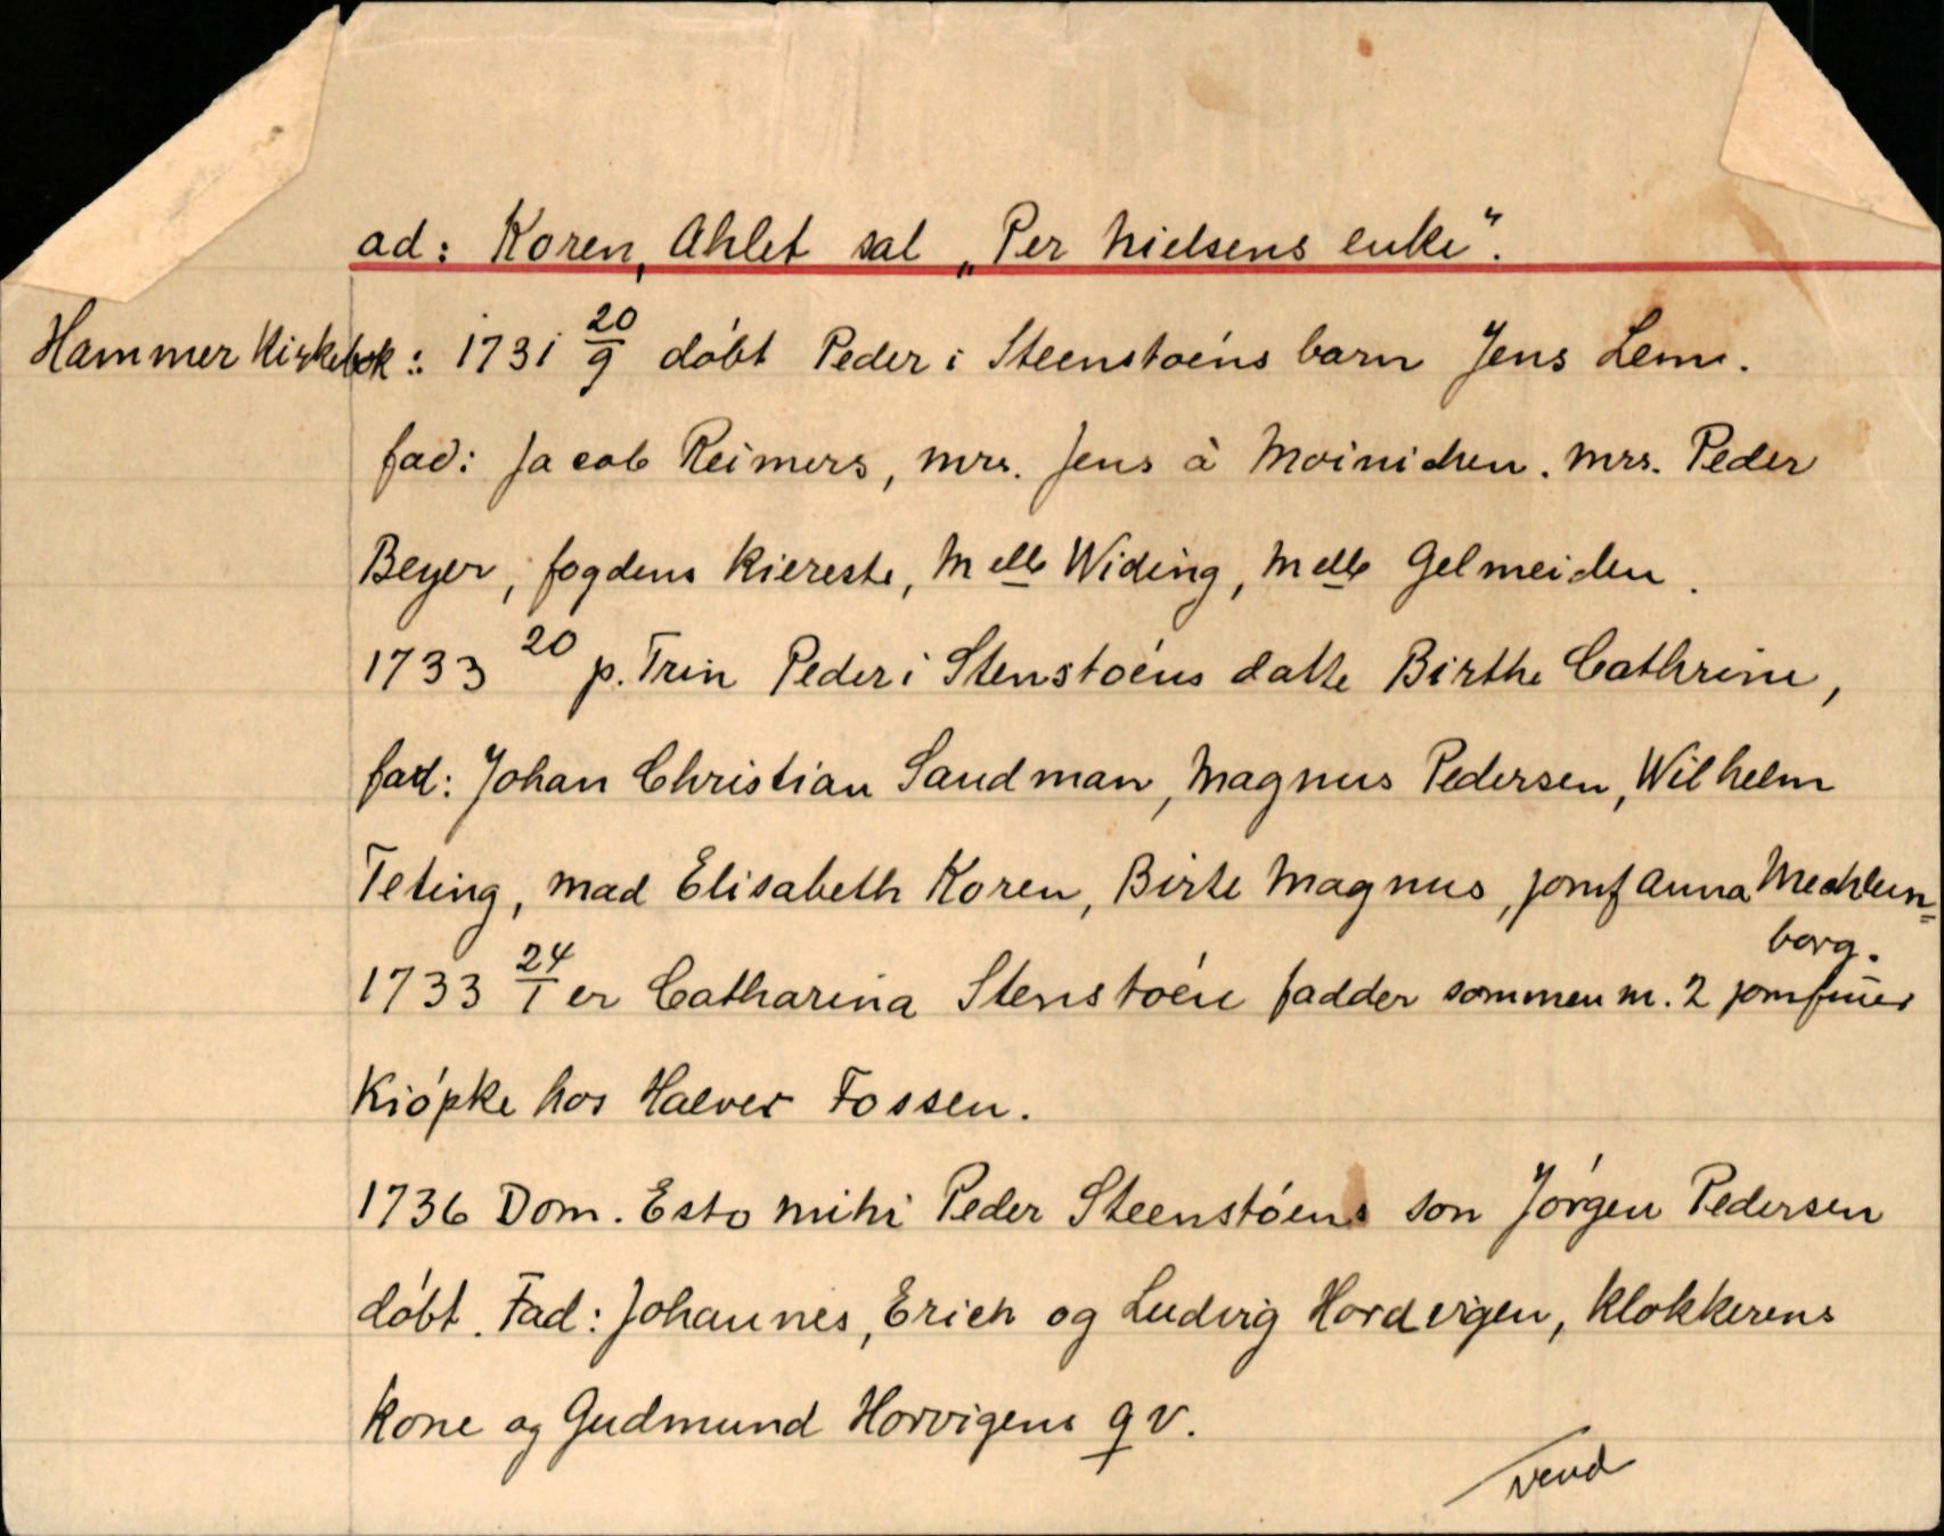 ad: Koren, Ahlet sal „Per Nielsens enke".
Hammer Kirkebok: 1731 20/9 døbt Peder i Steenstøens barn Jens Lem.
fad: Jacob Reimers, mrs. Jens à Moinichen. mrs. Peder
Beyer, fogdens Kiereste, Melle Widing, Melle Gelmeiden.
1733 20 p. Trin Peder i Stenstøens datte Birthe Cathrine,
fad: Johan Christian Sandman, Magnus Pedersen, Wilhelm
Teting, mad Elisabeth Koren, Birte Magnus, jomf Anna Mechlen=
borg.
1733 24/1 er Catharina Stenstøen fadder sammen m. 2 jomfruer
Kiøpke hos Halver Fossen.
1736 Dom. Esto mihi Peder Steenstøens søn Jørgen Pedersen
døbt. Fad: Johannes, Erich og Ludvig Hordvigen, Klokkerens
Kone og Gudmund Horvigens qv.
vend